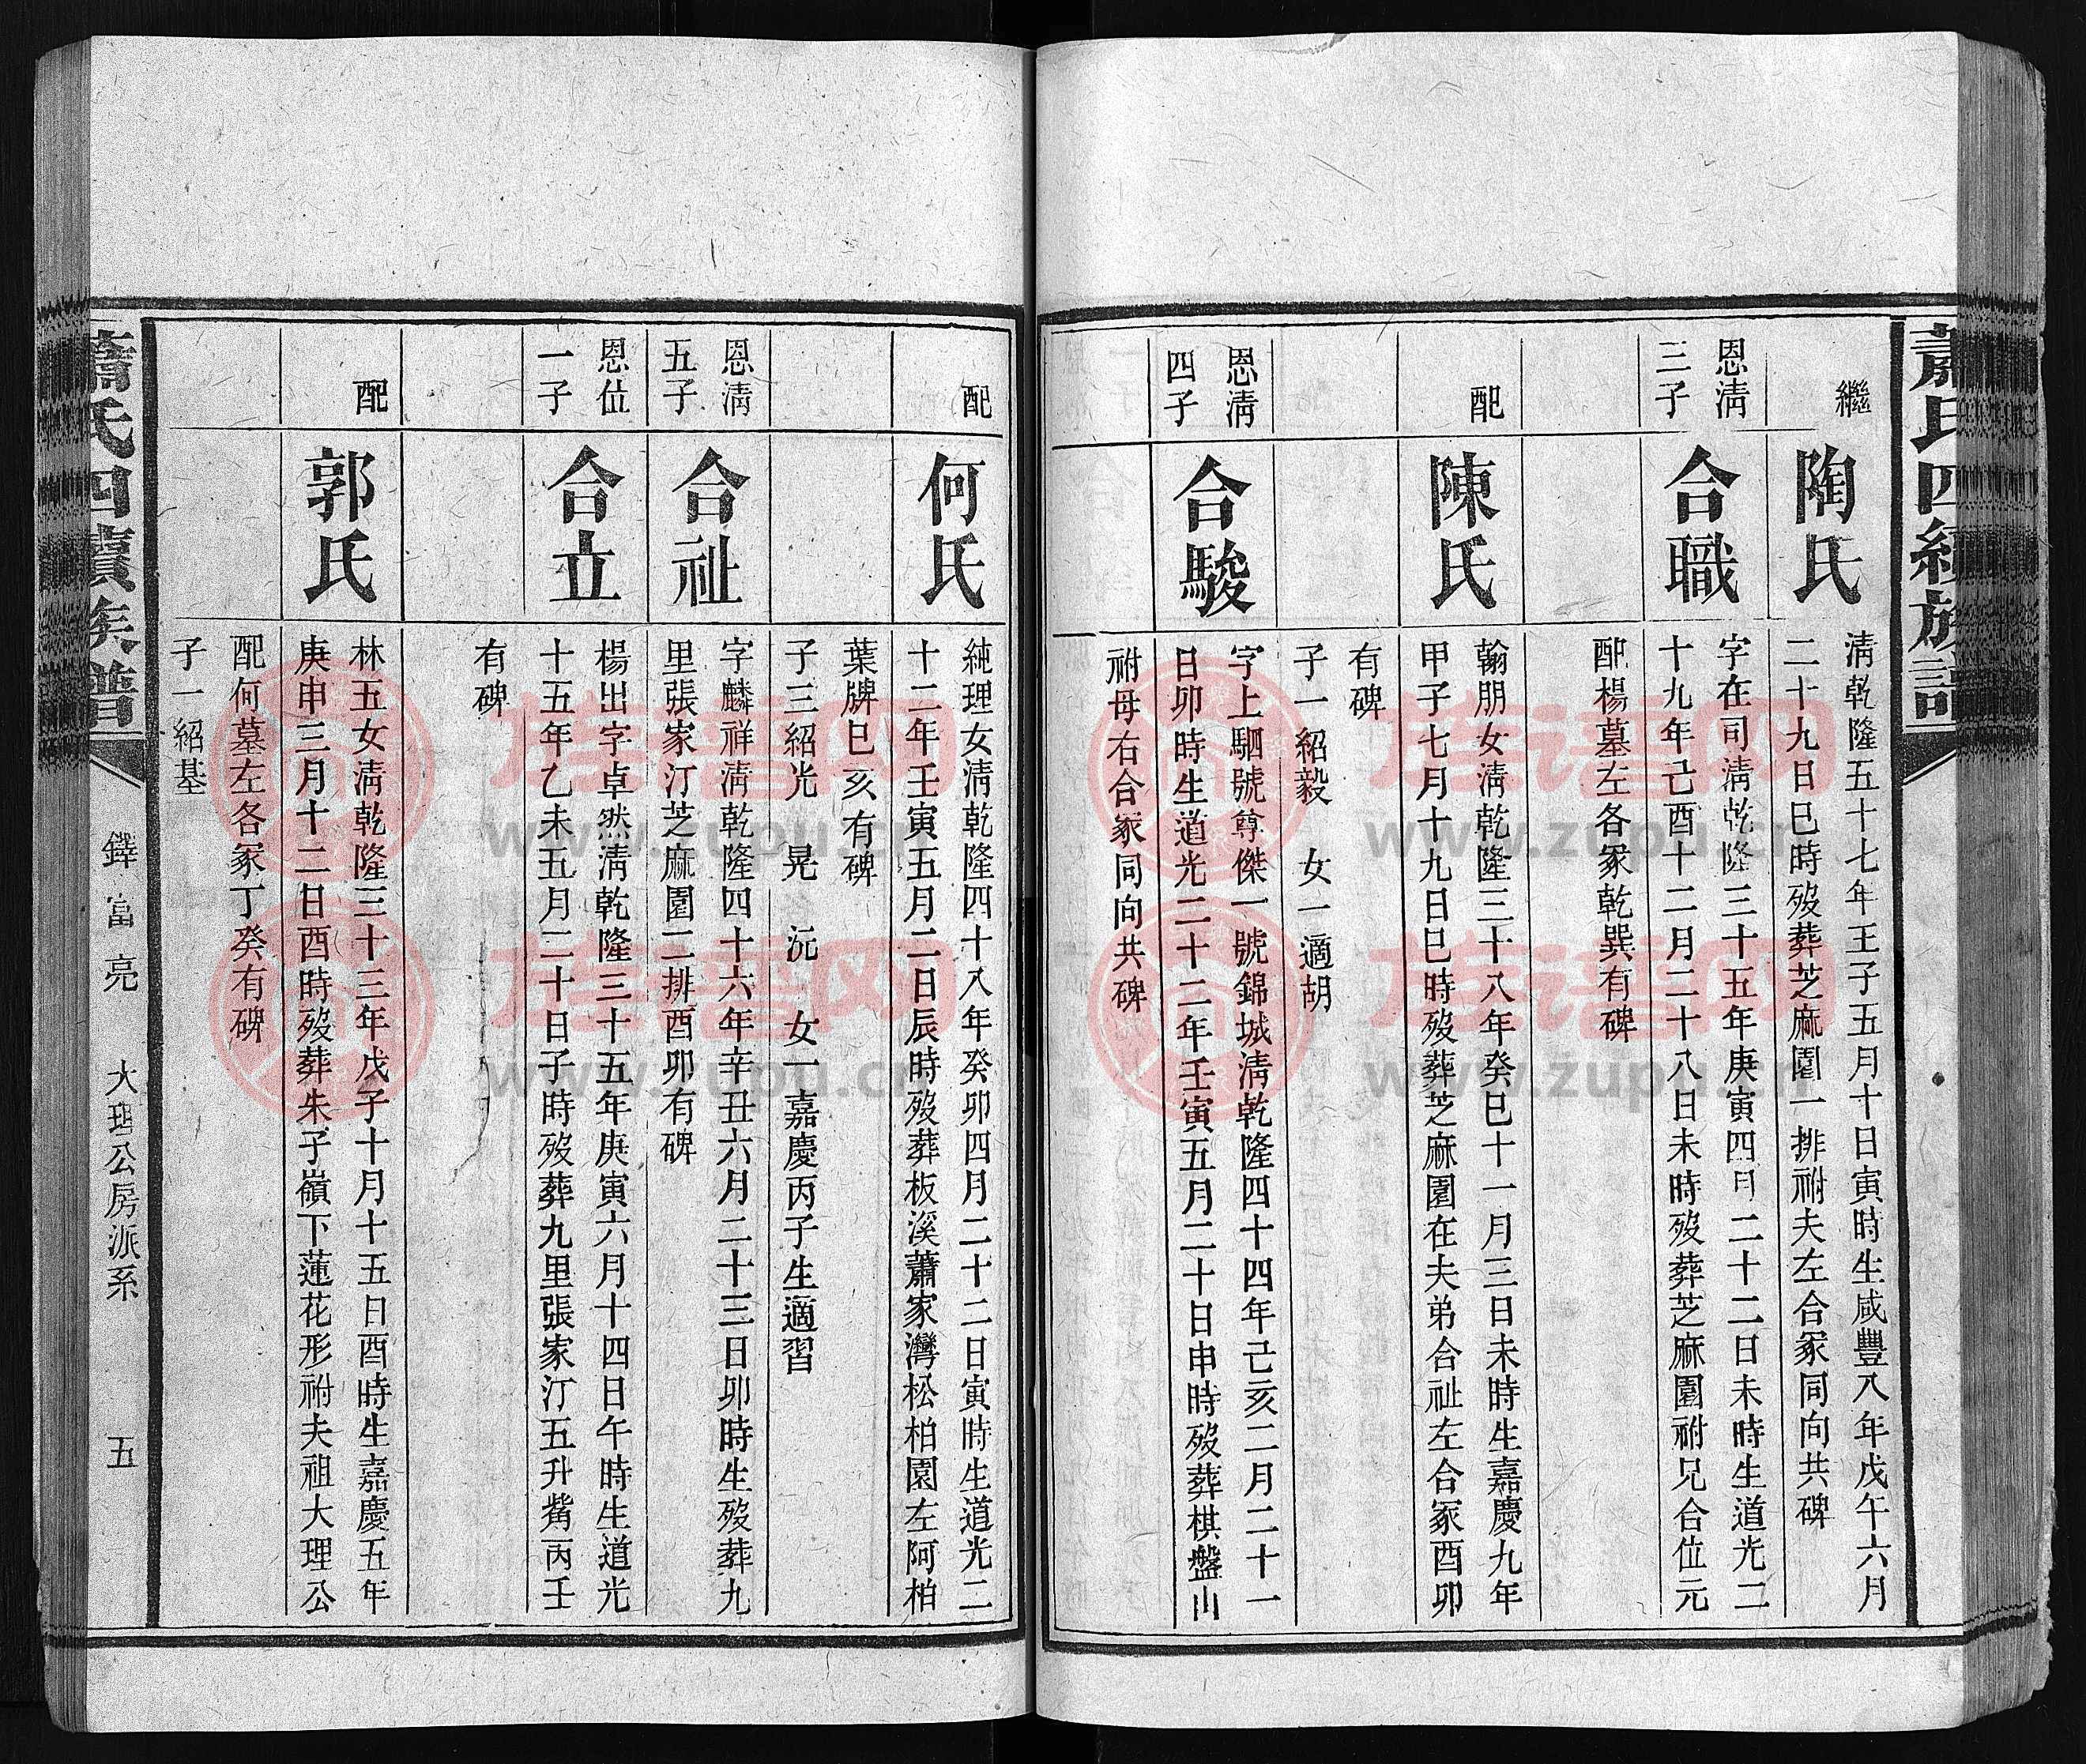 蕭氏四續族譜
繼
陶氏
清乾隆五十七年壬子五月十日寅時生咸豐八年戊午六月
二十九日巳時歿葬芝麻園一排祔夫左合冢同向共碑
恩淸
三子
合職
字在司淸乾隆三十五年庚寅四月二十二日未時生道光二
十九年己酉十二月二十八日未時歿葬芝麻園祔兄合位元
配楊墓左各冢乾巽有碑
配
陳氏
翰朋女淸乾隆三十八年癸巳十一月三日未時生嘉慶九年
甲子七月十九日巳時歿葬芝麻園在夫弟合祉左合冢酉卯
有碑
子一紹毅 女一適胡
恩淸
四子
合駿
字上駟號尊傑一號錦城淸乾隆四十四年己亥二月二十一
日卯時生道光二十二年壬寅五月二十日申時歿葬棋盤山
祔母右合冢同向共碑
配
何氏
純理女淸乾隆四十八年癸卯四月二十二日寅時生道光二
十二年壬寅五月二日辰時歿葬板溪蕭家灣松柏園左阿柏
葉牌巳亥有碑
子三紹光 晃 沅 女一嘉慶丙子生適習
恩淸
五子
合祉
字麟祥淸乾隆四十六年辛丑六月二十三日卯時生歿葬九
里張家汀芝麻園二排酉卯有碑
恩位
一子
合立
楊出字卓然淸乾隆三十五年庚寅六月十四日午時生道光
十五年乙未五月二十日子時歿葬九里張家汀五升觜丙壬
有碑
配
郭氏
林五女淸乾隆三十三年戊子十月十五日酉時生嘉慶五年
庚申三月十二日酉時歿葬朱子嶺下蓮花形祔夫祖大理公
配何墓左各冢丁癸有碑
子一紹基
蕭氏四續族譜
鐸富亮 大理公房派系 五
族譜网
www.zupu.cn
族譜网
www.zupu.cn
族譜网
www.zupu.cn
族譜网
www.zupu.cn